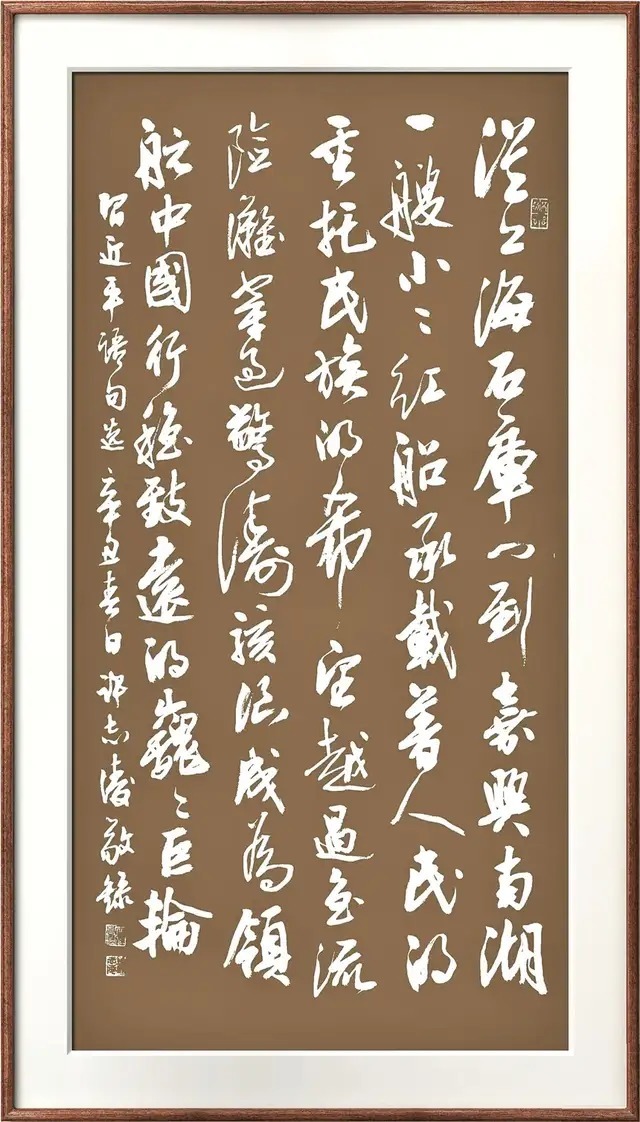 從上海石庫门到嘉興南湖
一艘小〻红船承載着人民的
重托民族的希望越過急流
险灘穿过驚濤骇浪成為領
航中國行穩致遠的巍〻巨輪
習近平語句选 辛丑春日 志濤敬録